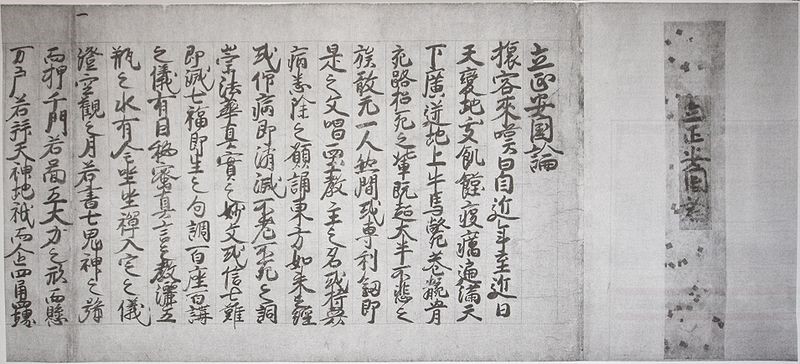 立正安国論
立正安国論
旅客來嘆曰自近年至近日
天變地夭飢饉疫癘遍満天
下廣迸地上牛馬斃巷骸骨
充路招死之輩既超大半不悲之
族敢无一人然間或専利釼即
是之文唱西土教主之名或持衆
病悉除之願誦東方如来之經
或仰病即消滅不老不死之詞
崇法華真實之妙文或信七難
即滅七福即生之句調百座百講
之儀有因秘密真言之教灑五
瓶之水有全坐禅入定之儀
澄空觀之月若書七鬼神之号
而押千門若圖五大力之形而懸
万戸若拝天神地祇而企四角四堺
一